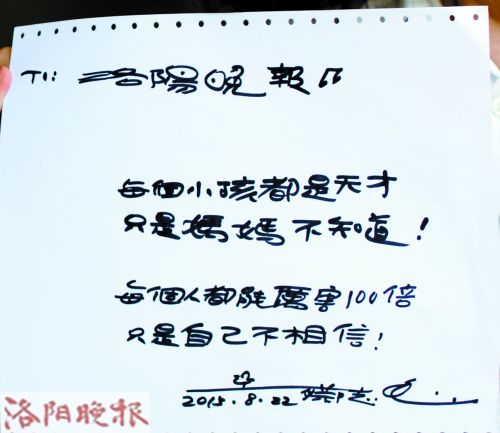 TO: 洛陽晚報
每個小孩都是天才
只是媽媽不知道!
每個人都能厲害100倍
只是自己不相信!
2015.8.22
洛阳晚报